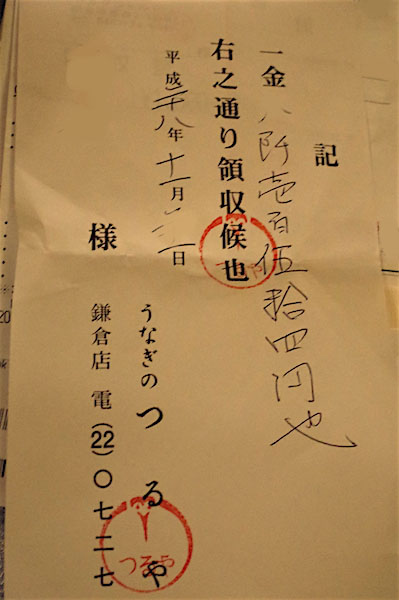 記
一金 八阡壱百伍拾四円也
右之通り領収候也
平成二十八年十一月 日
様
うなぎの つるや
鎌倉店 電(22)〇七二七
つるや
つるや